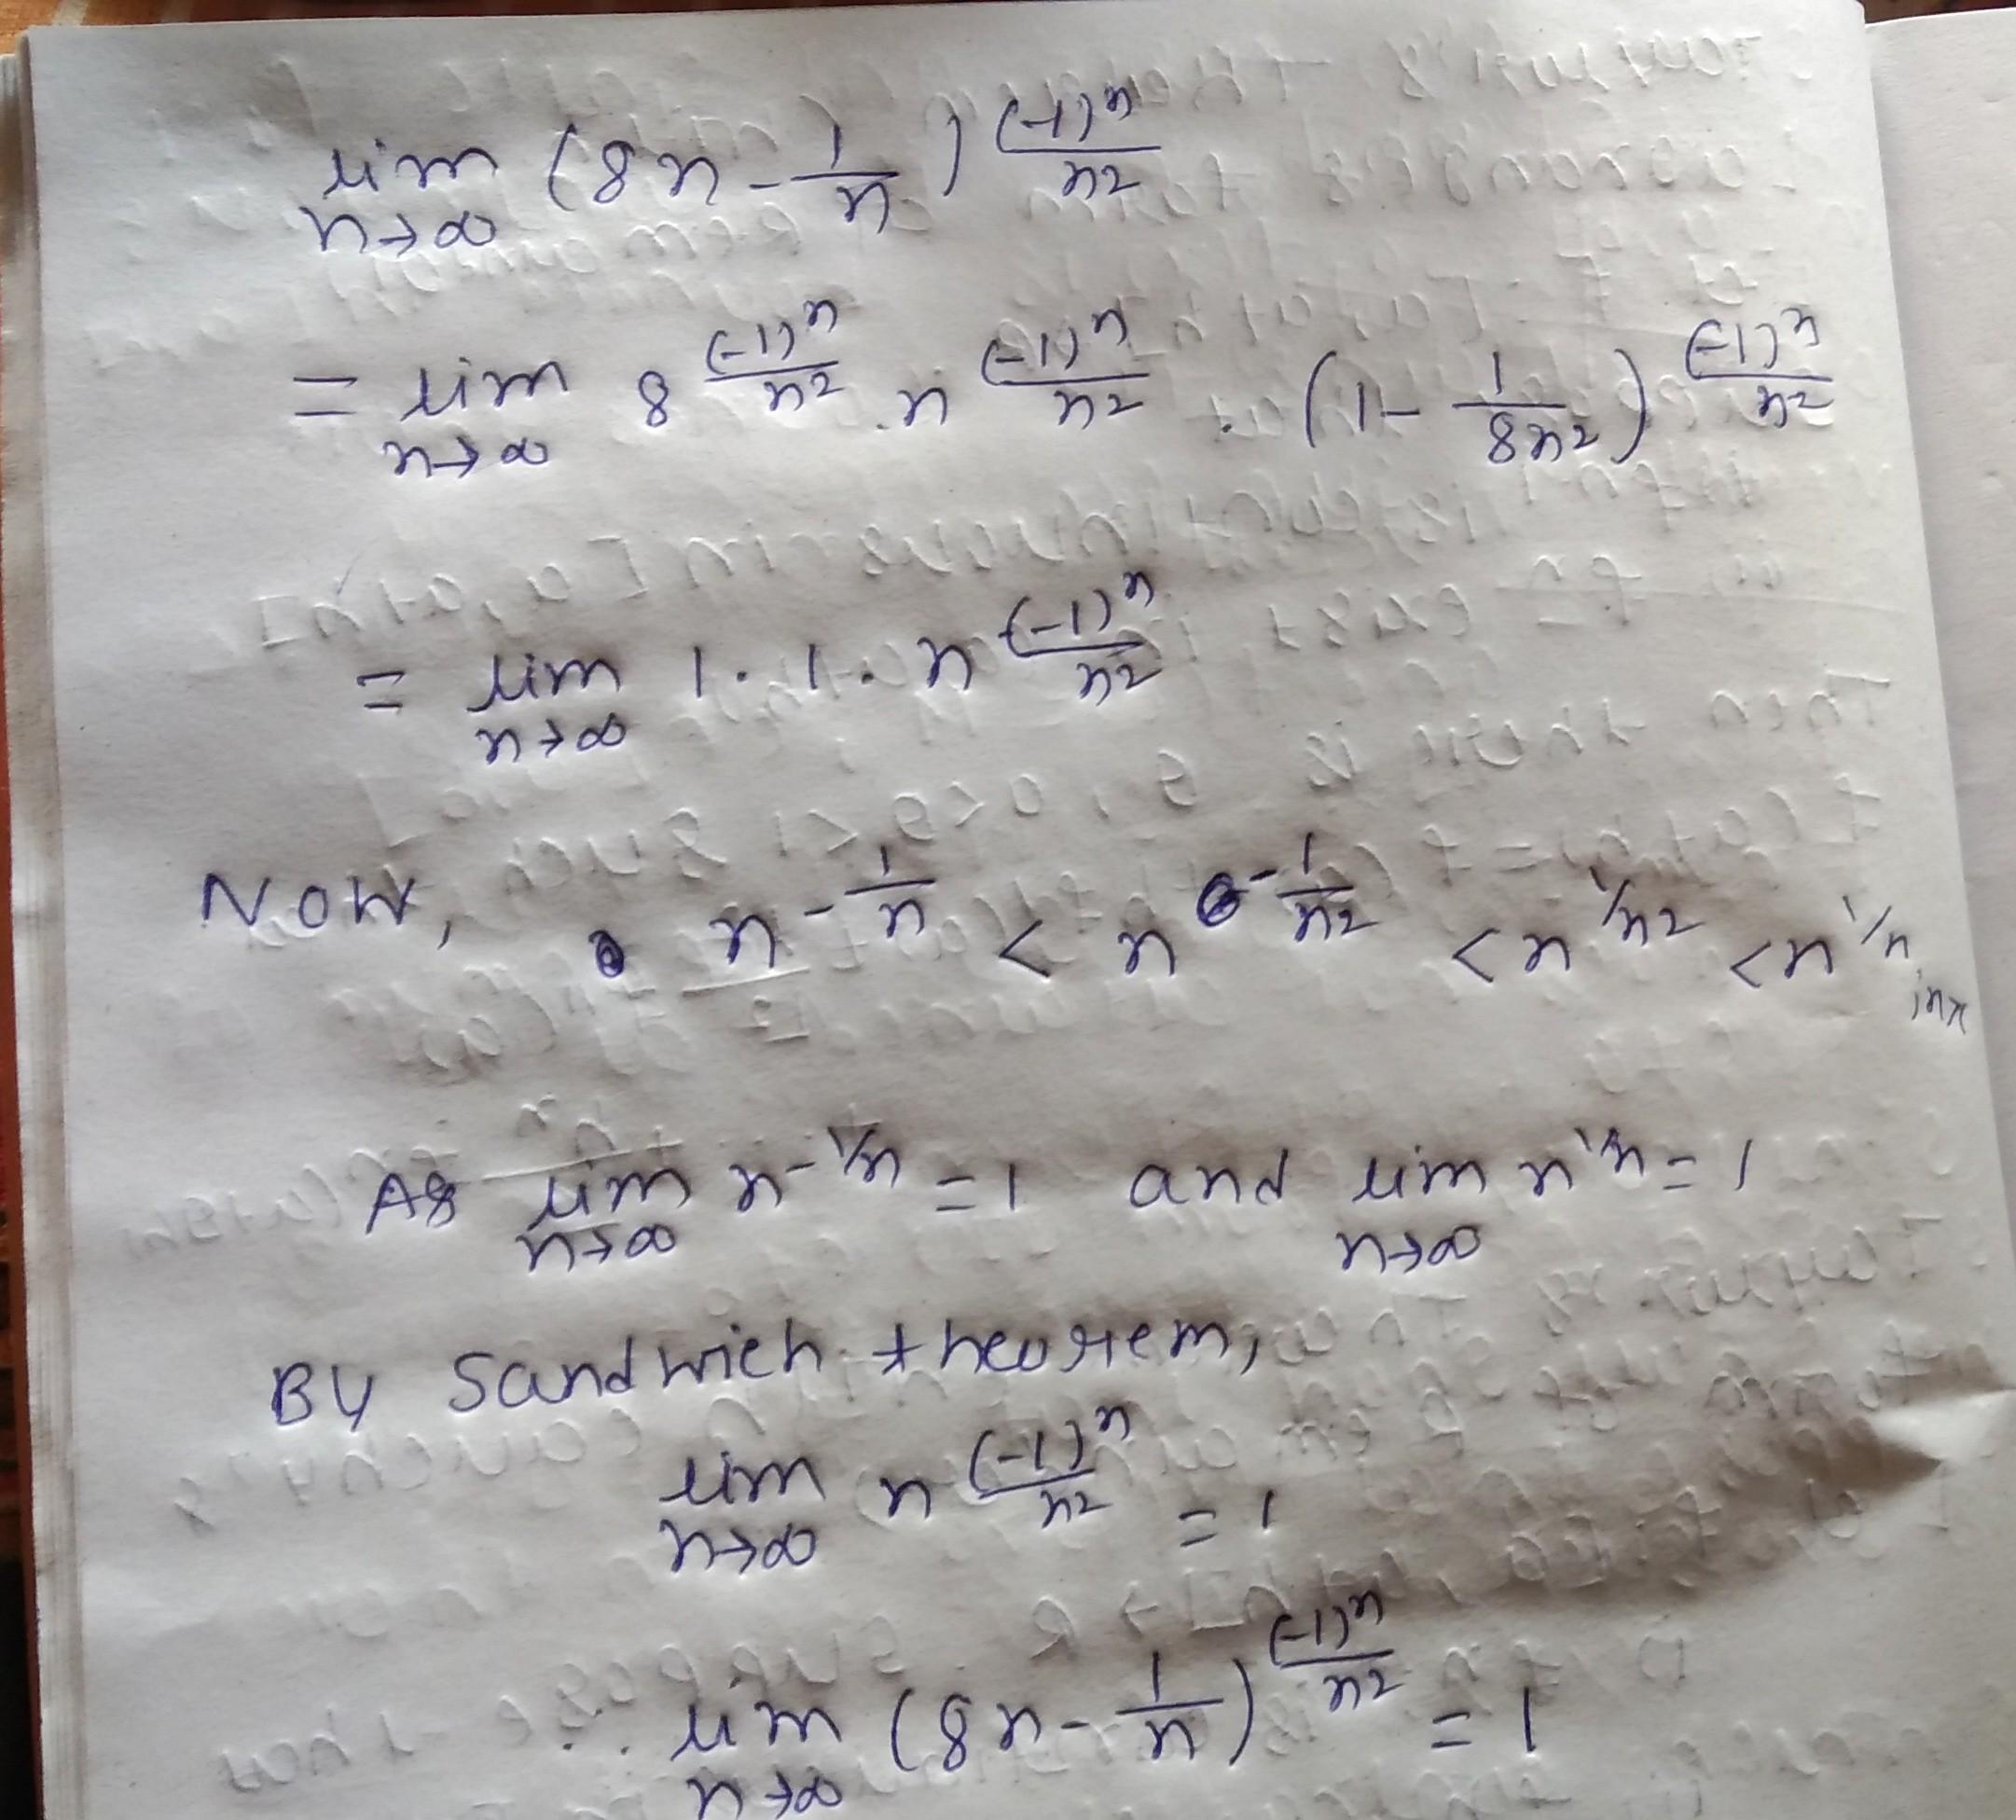 lim n→∞ (8n - 1/n)^((-1)^n/n²)
= lim n→∞ 8^((-1)^n/n²) . n^((-1)^n/n²) . (1 - 1/8n²)^((-1)^n/n²)
= lim n→∞ 1 . 1 . n^((-1)^n/n²)
Now, n^(-1/n) < n^(-1/n²) < n^(1/n²) < n^(1/n)
As lim n→∞ n^(-1/n) = 1 and lim n→∞ n^(1/n) = 1
By Sandwich theorem,
lim n→∞ n^((-1)^n/n²) = 1
∴ lim n→∞ (8n - 1/n)^((-1)^n/n²) = 1